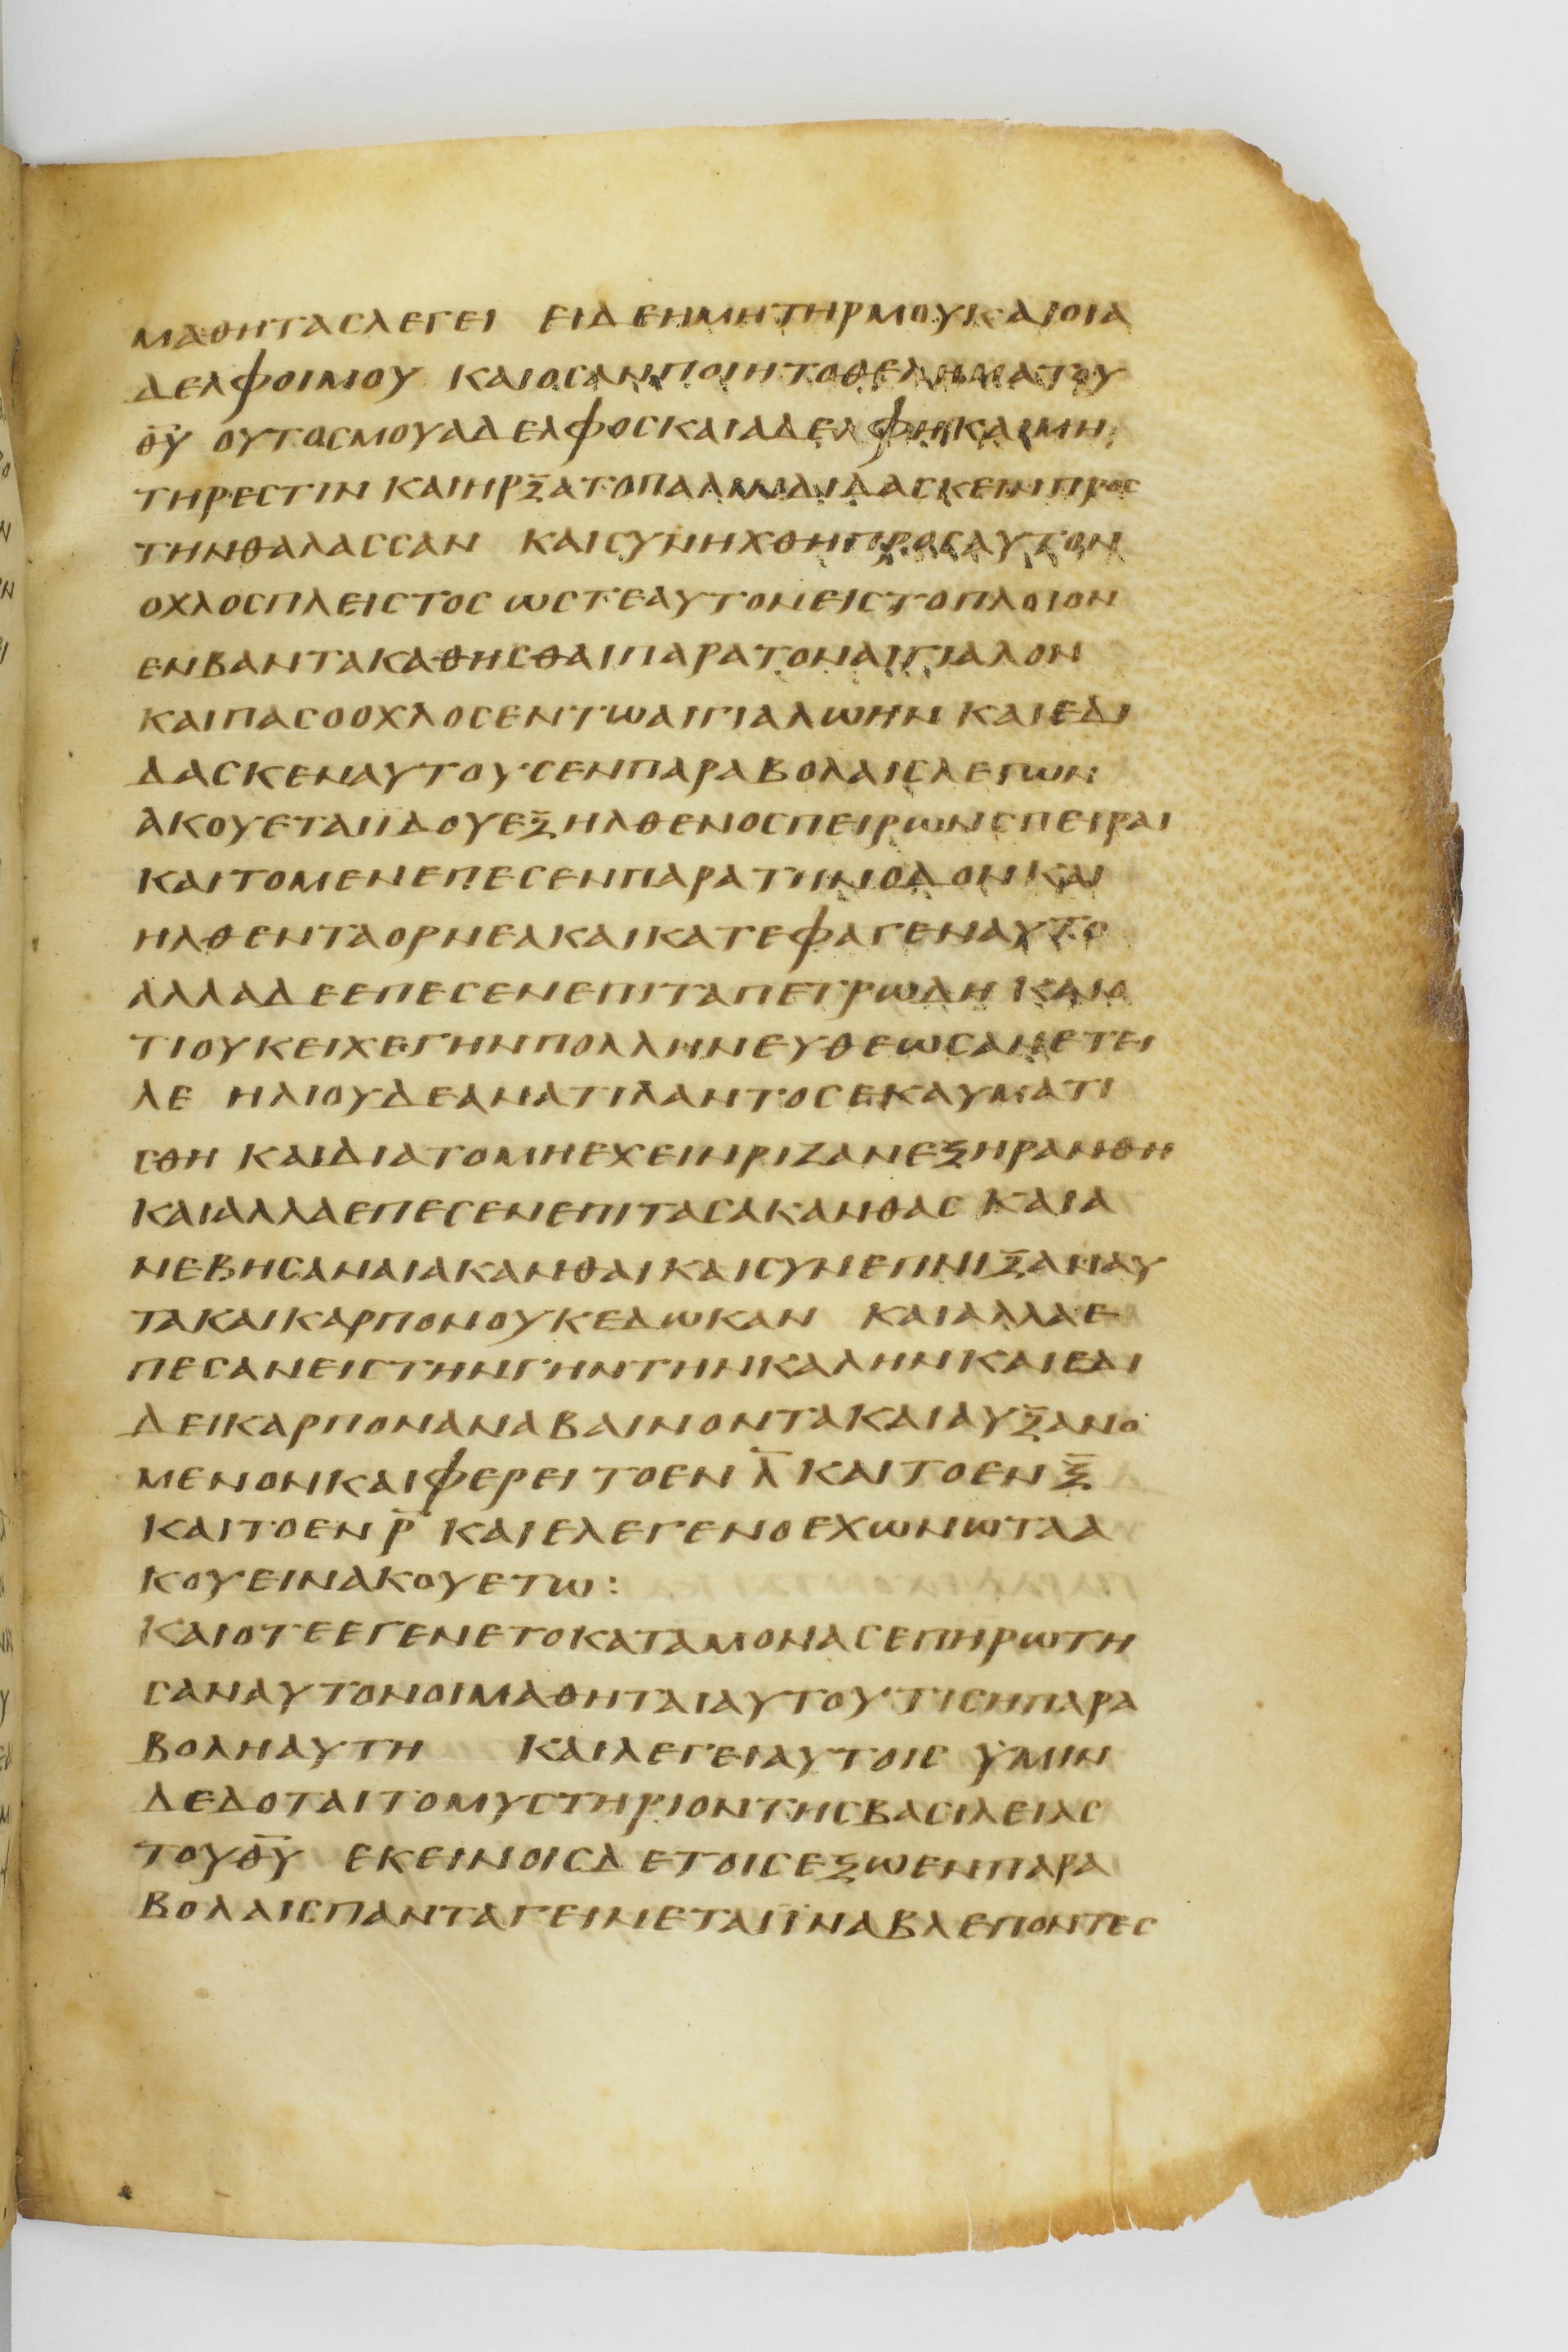 ΜΑΘΗΤΑΣ ΛΕΓΕΙ ΕΙΔΕ Η ΜΗΤΗΡ ΜΟΥ ΚΑΙ ΟΙ Α
ΔΕΛΦΟΙ ΜΟΥ ΚΑΙ ΟΣ ΑΝ ΠΟΙΗ ΤΟ ΘΕΛΗΜΑ ΤΟΥ
Θ̅Υ̅ ΟΥΤΟΣ ΜΟΥ ΑΔΕΛΦΟΣ ΚΑΙ ΑΔΕΛΦΗ ΚΑΙ ΜΗ
ΤΗΡ ΕΣΤΙΝ ΚΑΙ ΗΡΞΑΤΟ ΠΑΛΙΝ ΔΙΔΑΣΚΕΙΝ ΠΡΟΣ
ΤΗΝ ΘΑΛΑΣΣΑΝ ΚΑΙ ΣΥΝΗΧΘΗ ΠΡΟΣ ΑΥΤΟΝ
ΟΧΛΟΣ ΠΛΕΙΣΤΟΣ ΩΣΤΕ ΑΥΤΟΝ ΕΙΣ ΤΟ ΠΛΟΙΟΝ
ΕΝΒΑΝΤΑ ΚΑΘΗΣΘΑΙ ΠΑΡΑ ΤΟΝ ΑΙΓΙΑΛΟΝ
ΚΑΙ ΠΑΣ Ο ΟΧΛΟΣ ΕΝ ΤΩ ΑΙΓΙΑΛΩ ΗΝ ΚΑΙ ΕΔΙ
ΔΑΣΚΕΝ ΑΥΤΟΥΣ ΕΝ ΠΑΡΑΒΟΛΑΙΣ ΛΕΓΩΝ
ΑΚΟΥΕΤΑΙ ΪΔΟΥ ΕΞΗΛΘΕΝ Ο ΣΠΕΙΡΩΝ ΣΠΕΙΡΑΙ
ΚΑΙ ΤΟ ΜΕΝ ΕΠΕΣΕΝ ΠΑΡΑ ΤΗΝ ΟΔΟΝ ΚΑΙ
ΗΛΘΕΝ ΤΑ ΟΡΝΕΑ ΚΑΙ ΚΑΤΕΦΑΓΕΝ ΑΥΤΟ
ΑΛΛΑ ΔΕ ΕΠΕΣΕΝ ΕΠΙ ΤΑ ΠΕΤΡΩΔΗ ΚΑΙ Ο
ΤΙ ΟΥΚ ΕΙΧΕ ΓΗΝ ΠΟΛΛΗΝ ΕΥΘΕΩΣ ΑΝΕΤΕΙ
ΛΕ ΗΛΙΟΥ ΔΕ ΑΝΑΤΙΛΑΝΤΟΣ ΕΚΑΥΜΑΤΙ
ΣΘΗ ΚΑΙ ΔΙΑ ΤΟ ΜΗ ΕΧΕΙΝ ΡΙΖΑΝ ΕΞΗΡΑΝΘΗ
ΚΑΙ ΑΛΛΑ ΕΠΕΣΕΝ ΕΠΙ ΤΑΣ ΑΚΑΝΘΑΣ ΚΑΙ Α
ΝΕΒΗΣΑΝ ΑΙ ΑΚΑΝΘΑΙ ΚΑΙ ΣΥΝΕΠΝΙΞΑΝ ΑΥ
ΤΑ ΚΑΙ ΚΑΡΠΟΝ ΟΥΚ ΕΔΩΚΑΝ ΚΑΙ ΑΛΛΑ Ε
ΠΕΣΑΝ ΕΙΣ ΤΗΝ ΓΗΝ ΤΗΝ ΚΑΛΗΝ ΚΑΙ ΕΔΙ
ΔΕΙ ΚΑΡΠΟΝ ΑΝΑΒΑΙΝΟΝΤΑ ΚΑΙ ΑΥΞΑΝΟ
ΜΕΝΟΝ ΚΑΙ ΦΕΡΕΙ ΤΟ ΕΝ Λ̅ ΚΑΙ ΤΟ ΕΝ Ξ̅
ΚΑΙ ΤΟ ΕΝ Ρ̅ ΚΑΙ ΕΛΕΓΕΝ Ο ΕΧΩΝ ΩΤΑ Α
ΚΟΥΕΙΝ ΑΚΟΥΕΤΩ:
ΚΑΙ ΟΤΕ ΕΓΕΝΕΤΟ ΚΑΤΑ ΜΟΝΑΣ ΕΠΗΡΩΤΗ
ΣΑΝ ΑΥΤΟΝ ΟΙ ΜΑΘΗΤΑΙ ΑΥΤΟΥ ΤΙΣ Η ΠΑΡΑ
ΒΟΛΗ ΑΥΤΗ ΚΑΙ ΛΕΓΕΙ ΑΥΤΟΙΣ ΥΜΙΝ
ΔΕΔΟΤΑΙ ΤΟ ΜΥΣΤΗΡΙΟΝ ΤΗΣ ΒΑΣΙΛΕΙΑΣ
ΤΟΥ Θ̅Υ̅ ΕΚΕΙΝΟΙΣ ΔΕ ΤΟΙΣ ΕΞΩ ΕΝ ΠΑΡΑ
ΒΟΛΑΙΣ ΠΑΝΤΑ ΓΕΙΝΕΤΑΙ ΪΝΑ ΒΛΕΠΟΝΤΕΣ